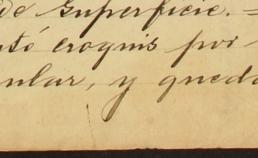 de superficie. =
tó croquis por
ular, y queda